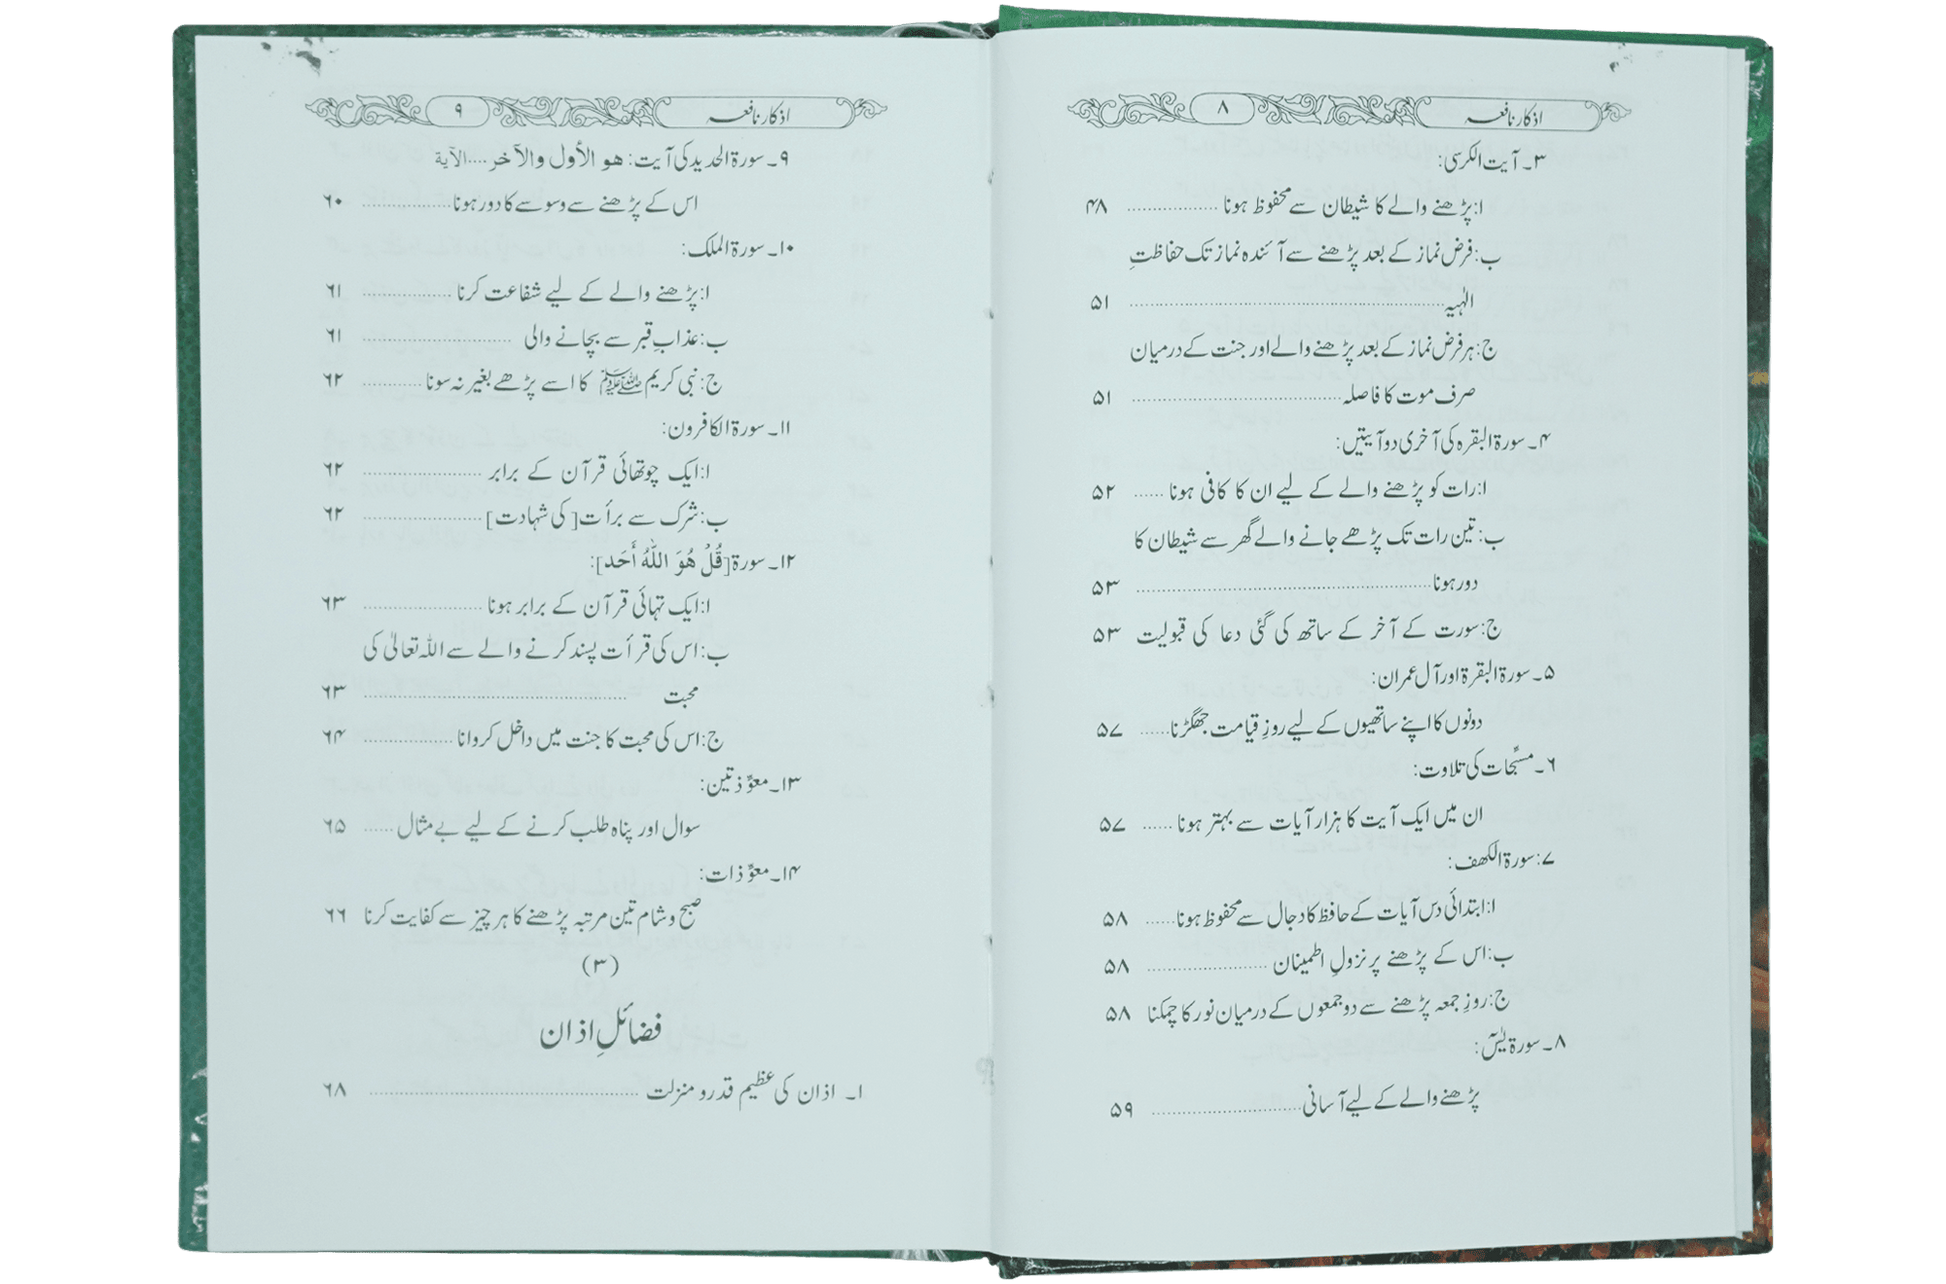 اذکار نافعہ ۸
۳۔ آیت الکرسی:
ا: پڑھنے والے کا شیطان سے محفوظ ہونا ........ ۴۸
ب: فرض نماز کے بعد پڑھنے سے آئندہ نماز تک حفاظتِ
الٰہیہ ........ ۵۱
ج: ہر فرض نماز کے بعد پڑھنے والے اور جنت کے درمیان
صرف موت کا فاصلہ ........ ۵۱
۴۔ سورۃ البقرہ کی آخری دو آیتیں:
ا: رات کو پڑھنے والے کے لیے ان کا کافی ہونا ...... ۵۲
ب: تین رات تک پڑھے جانے والے گھر سے شیطان کا
دور ہونا ........ ۵۳
ج: سورت کے آخر کے ساتھ کی گئی دعا کی قبولیت ۵۳
۵۔ سورۃ البقرۃ اور آل عمران:
دونوں کا اپنے ساتھیوں کے لیے روزِ قیامت جھگڑنا ...... ۵۷
۶۔ مسبِّحات کی تلاوت:
ان میں ایک آیت کا ہزار آیات سے بہتر ہونا ...... ۵۷
۷: سورۃ الکھف:
ا: ابتدائی دس آیات کے حافظ کا دجال سے محفوظ ہونا ...... ۵۸
ب: اس کے پڑھنے پر نزولِ اطمینان ........ ۵۸
ج: روزِ جمعہ پڑھنے سے دو جمعوں کے درمیان نور کا چمکنا ۵۸
۸۔ سورۃ یٰسٓ:
پڑھنے والے کے لیے آسانی ........ ۵۹
اذکار نافعہ ۹
۹۔ سورۃ الحدید کی آیت: هو الأول والآخر....الآية
اس کے پڑھنے سے وسوسے کا دور ہونا ........ ۶۰
۱۰۔ سورۃ الملک:
ا: پڑھنے والے کے لیے شفاعت کرنا ........ ۶۱
ب: عذابِ قبر سے بچانے والی ........ ۶۱
ج: نبی کریم ﷺ کا اسے پڑھے بغیر نہ سونا ........ ۶۲
۱۱۔ سورۃ الکافرون:
ا: ایک چوتھائی قرآن کے برابر ........ ۶۲
ب: شرک سے برأت [کی شہادت] ........ ۶۲
۱۲۔ سورۃ [قُلْ هُوَ اللّٰهُ أَحَد]:
ا: ایک تہائی قرآن کے برابر ہونا ........ ۶۳
ب: اس کی قرأت پسند کرنے والے سے اللہ تعالیٰ کی
محبت ........ ۶۳
ج: اس کی محبت کا جنت میں داخل کروانا ........ ۶۴
۱۳۔ معوِّذتین:
سوال اور پناہ طلب کرنے کے لیے بے مثال ...... ۶۵
۱۴۔ معوِّذات:
صبح و شام تین مرتبہ پڑھنے کا ہر چیز سے کفایت کرنا ۶۶
(۳)
فضائلِ اذان
۱۔ اذان کی عظیم قدر و منزلت ........ ۶۸